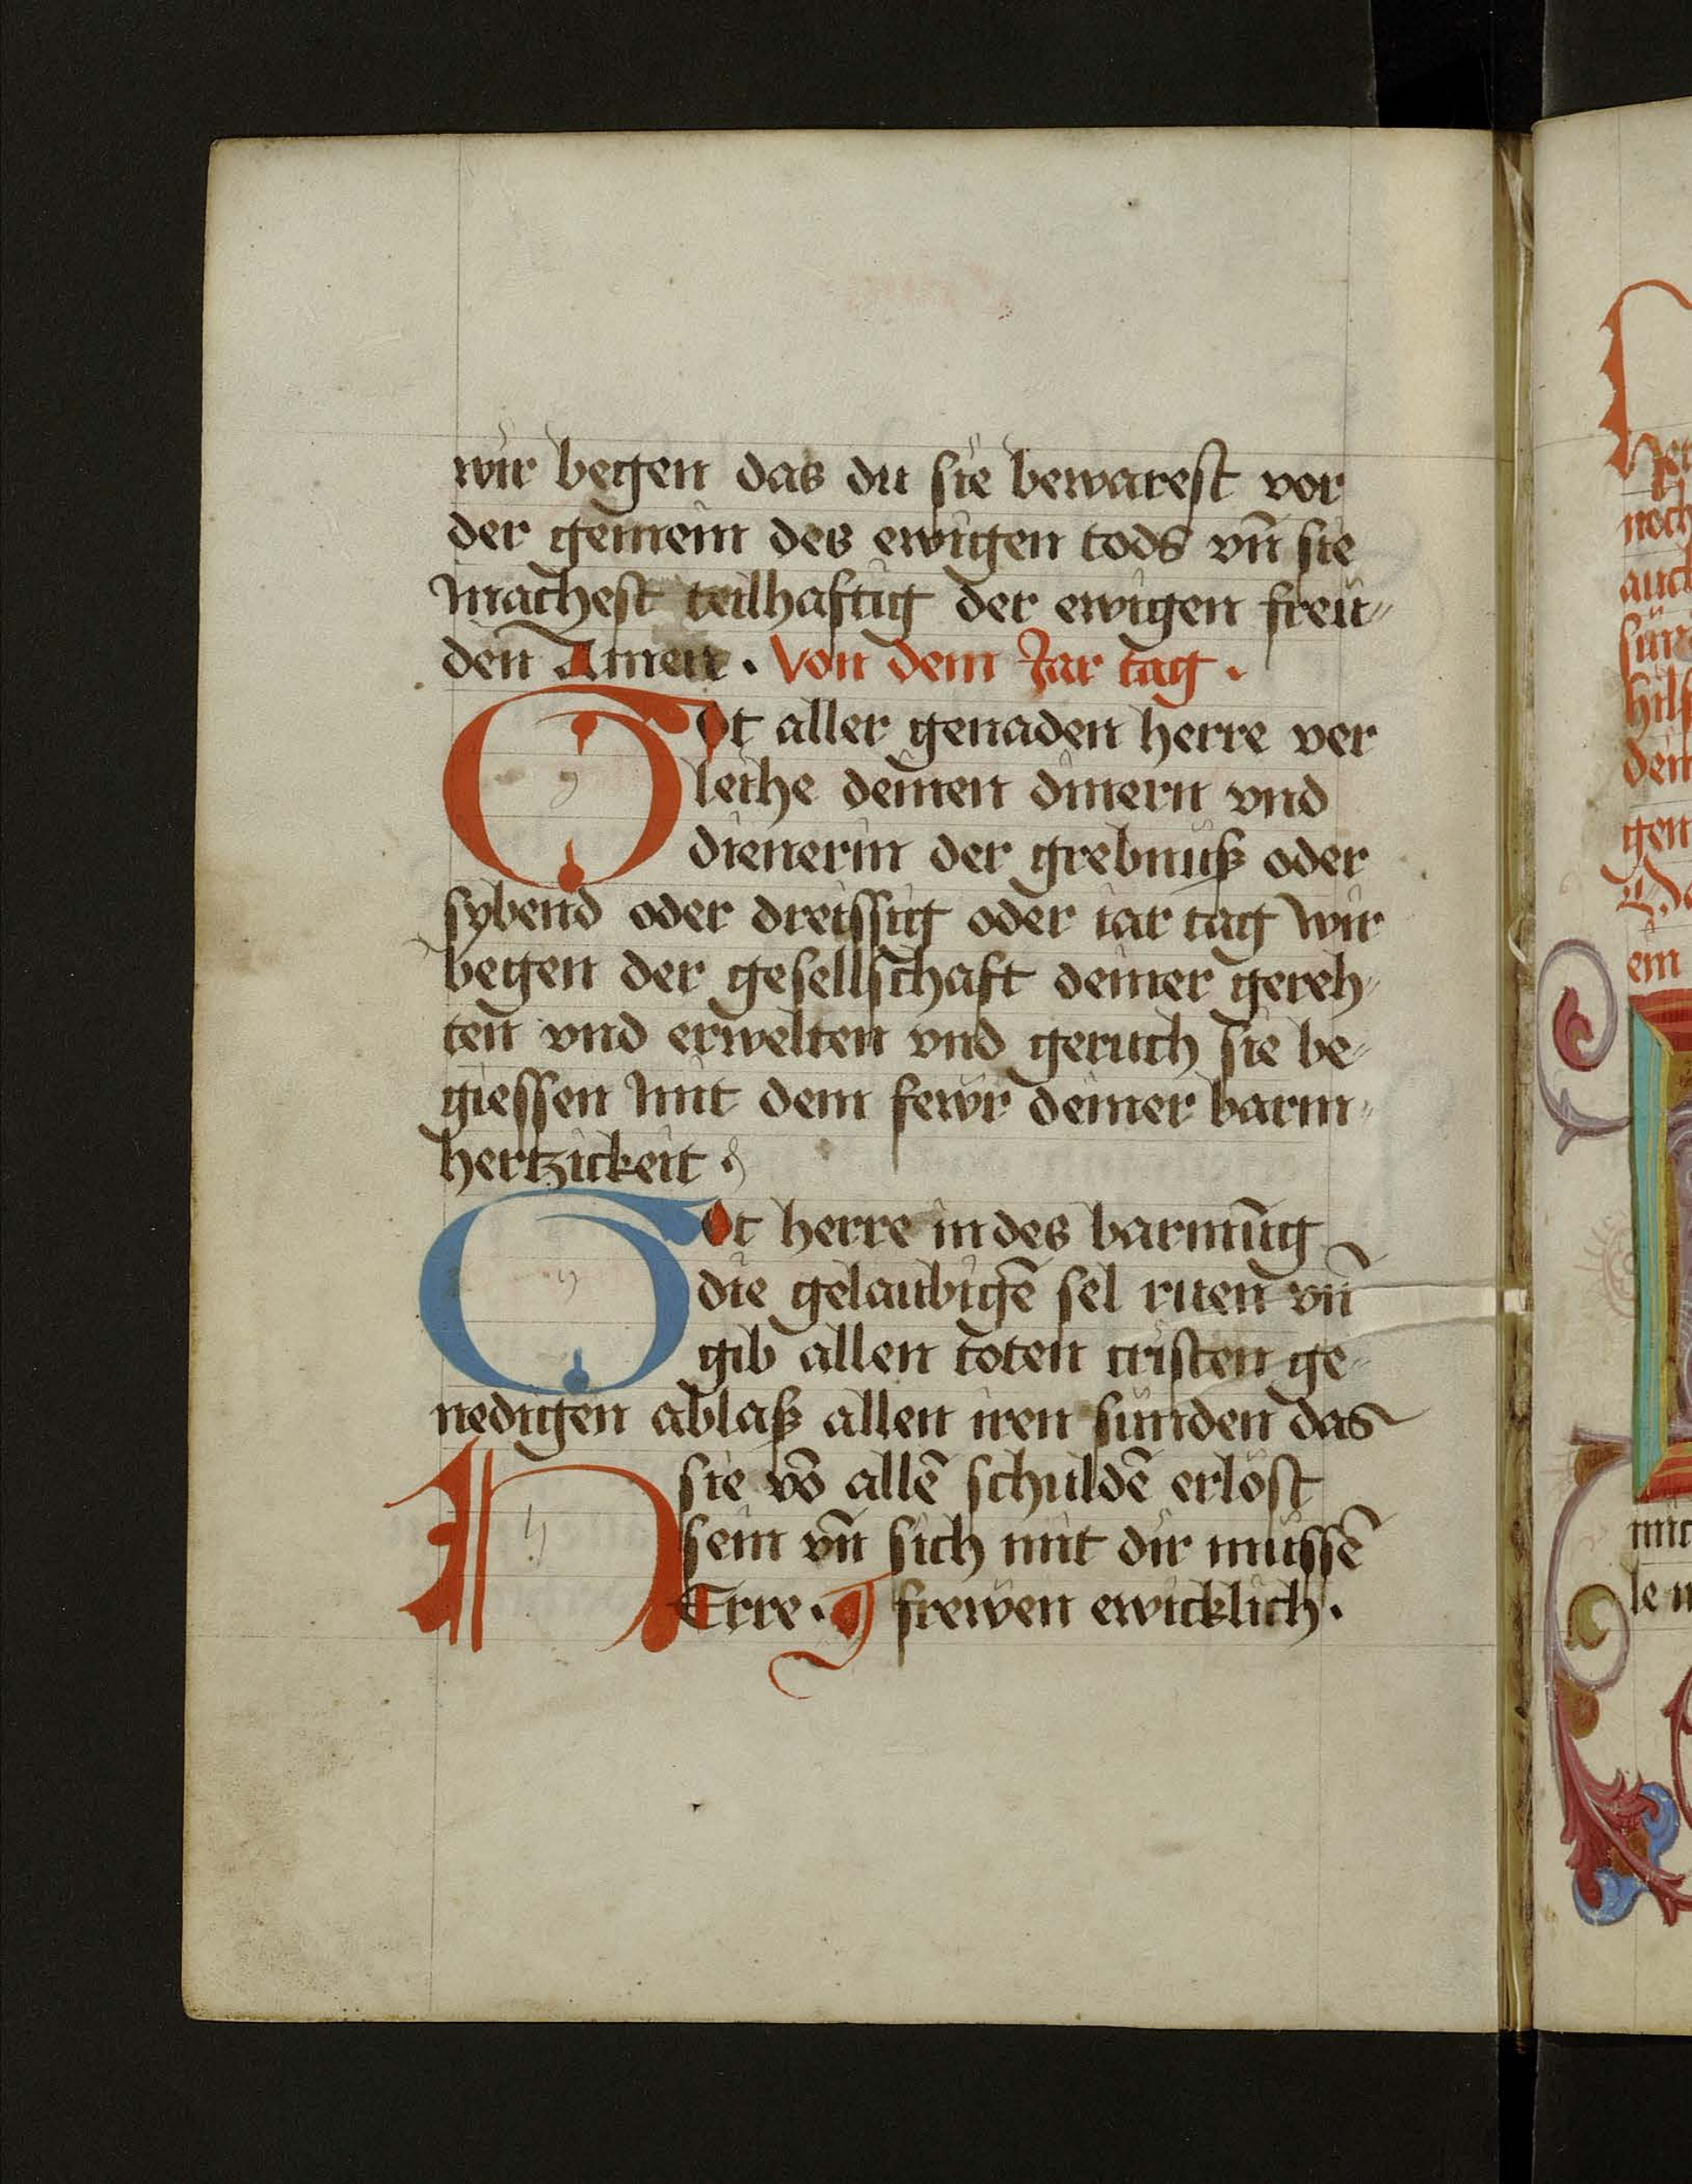 wir begen das du sie bewarest vor
der gemein des ewigen tods vn̄ sie
machest teilhaftig der ewigen freu⸗
den Amen. Von dem Jar tag.
Got aller genaden herre ver
leihe deinen dinern vnd
dienerin der grebnuß oder
sybend oder dreissig oder iar tag wir
begen der gesellschaft deiner gereh⸗
ten vnd erwelten vnd geruch sie be⸗
giessen mit dem fewr deiner barm⸗
hertzickeit.
Got herre in des barmūg
die gelaubigē sel ruen vn̄
gib allen toten cristen ge⸗
nedigen ablaß allen iren sunden das
sie vō allē schuldē erlöst
sein vn̄ sich mit dir mussē
HErre. frewen ewicklich.
noch
auch
ein
mit